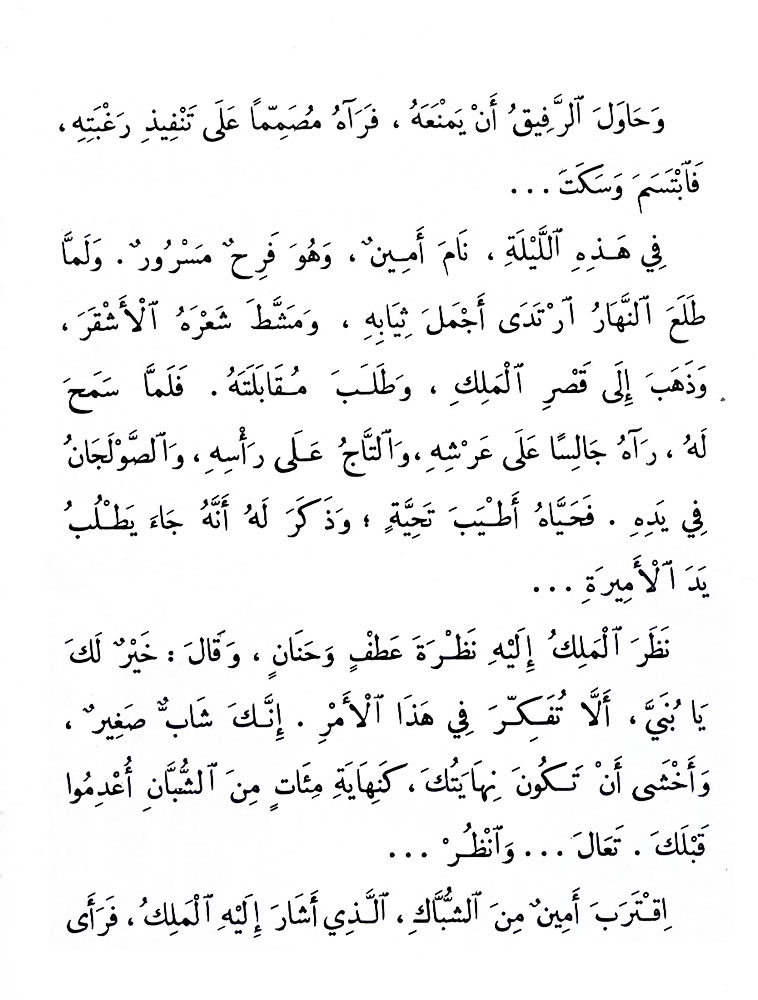 وَحَاوَلَ ٱلرَّفِيقُ أَنْ يَمْنَعَهُ ، فَرَآهُ مُصَمِّماً عَلَى تَنْفِيذِ رَغْبَتِهِ ،
فَٱبْتَسَمَ وَسَكَتَ ...
فِي هَذِهِ ٱللَّيْلَةِ ، نَامَ أَمِينٌ ، وَهُوَ فَرِحٌ مَسْرُورٌ . وَلَمَّا
طَلَعَ ٱلنَّهَارُ ٱرْتَدَى أَجْمَلَ ثِيَابِهِ ، وَمَشَّطَ شَعْرَهُ ٱلْأَشْقَرَ ،
وَذَهَبَ إِلَى قَصْرِ ٱلْمَلِكِ ، وَطَلَبَ مُقَابَلَتَهُ . فَلَمَّا سَمَحَ
لَهُ ، رَآهُ جَالِسًا عَلَى عَرْشِهِ ، وَٱلتَّاجُ عَلَى رَأْسِهِ ، وَٱلصَّوْلَجَانُ
فِي يَدِهِ . فَحَيَّاهُ أَطْيَبَ تَحِيَّةٍ ؛ وَذَكَرَ لَهُ أَنَّهُ جَاءَ يَطْلُبُ
يَدَ ٱلْأَمِيرَةِ ...
نَظَرَ ٱلْمَلِكُ إِلَيْهِ نَظْرَةَ عَطْفٍ وَحَنَانٍ ، وَقَالَ : خَيْرٌ لَكَ
يَا بُنَيَّ ، أَلَّا تُفَكِّرَ فِي هَذَا ٱلْأَمْرِ . إِنَّكَ شَابٌّ صَغِيرٌ ،
وَأَخْشَى أَنْ تَكُونَ نِهَايَتُكَ ، كَنِهَايَةِ مِئَاتٍ مِنَ ٱلشُّبَّانِ أُعْدِمُوا
قَبْلَكَ . تَعَالَ ... وَٱنْظُرْ ...
اِقْتَرَبَ أَمِينٌ مِنَ ٱلشُّبَّاكِ ، ٱلَّذِي أَشَارَ إِلَيْهِ ٱلْمَلِكُ ، فَرَأَى